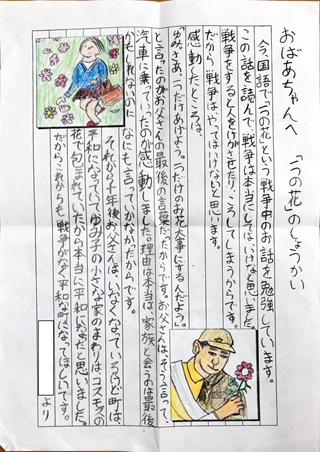 おばあちゃんへ 「一つの花」のしょうかい
今国語で「一つの花」という戦争中のお話を勉強しています。
この話を読んで、戦争は本当にしてはいけないと思いました。
戦争をすると人をけがさせたり、ころしてしまうからです。
だから、戦争はやってはいけないと思います。
感動したところは、
「ゆみ。さあ、一つだけあげよう。一つだけのお花、大事にするんだよう。」
と言ったのがお父さんの最後の言葉だからです。お父さんは、そう言って、
汽車に乗っていったのが感動しました。理由は本当は、家族と会うのは最後
かもしれないのに なにも言っていかなかったからです。
それから十年後お父さんは、いなくなっているけど町は、
平和になっていてゆみ子の小さな家のまわりは、コスモスの
花で包まれていたから本当に平和になったと思いました。
だからこれからも戦争がなく平和な町になってほしいです。
より